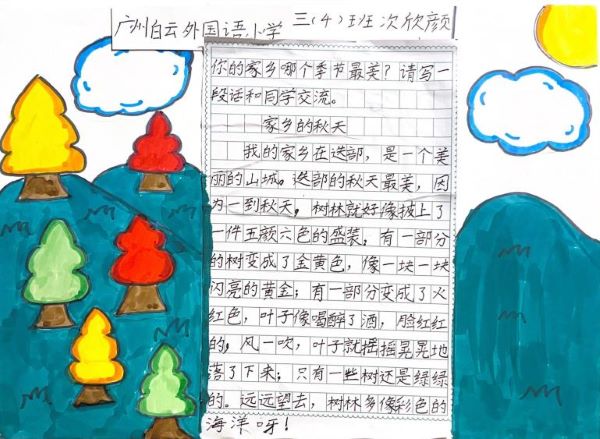 广州白云外国语小学 三(4)班次欣颜
你的家乡哪个季节最美?请写一
段话和同学交流。
家乡的秋天
我的家乡在迭部,是一个美
丽的山城。迭部的秋天最美,因
为一到秋天,树林就好像披上了
一件五颜六色的盛装,有一部分
的树变成了金黄色,像一块一块
闪亮的黄金;有一部分变成了火
红色,叶子像喝醉了酒,脸红红
的,风一吹,叶子就摇摇晃晃地
落了下来;只有一些树还是绿绿
的。远远望去,树林多像彩色的
海洋呀!